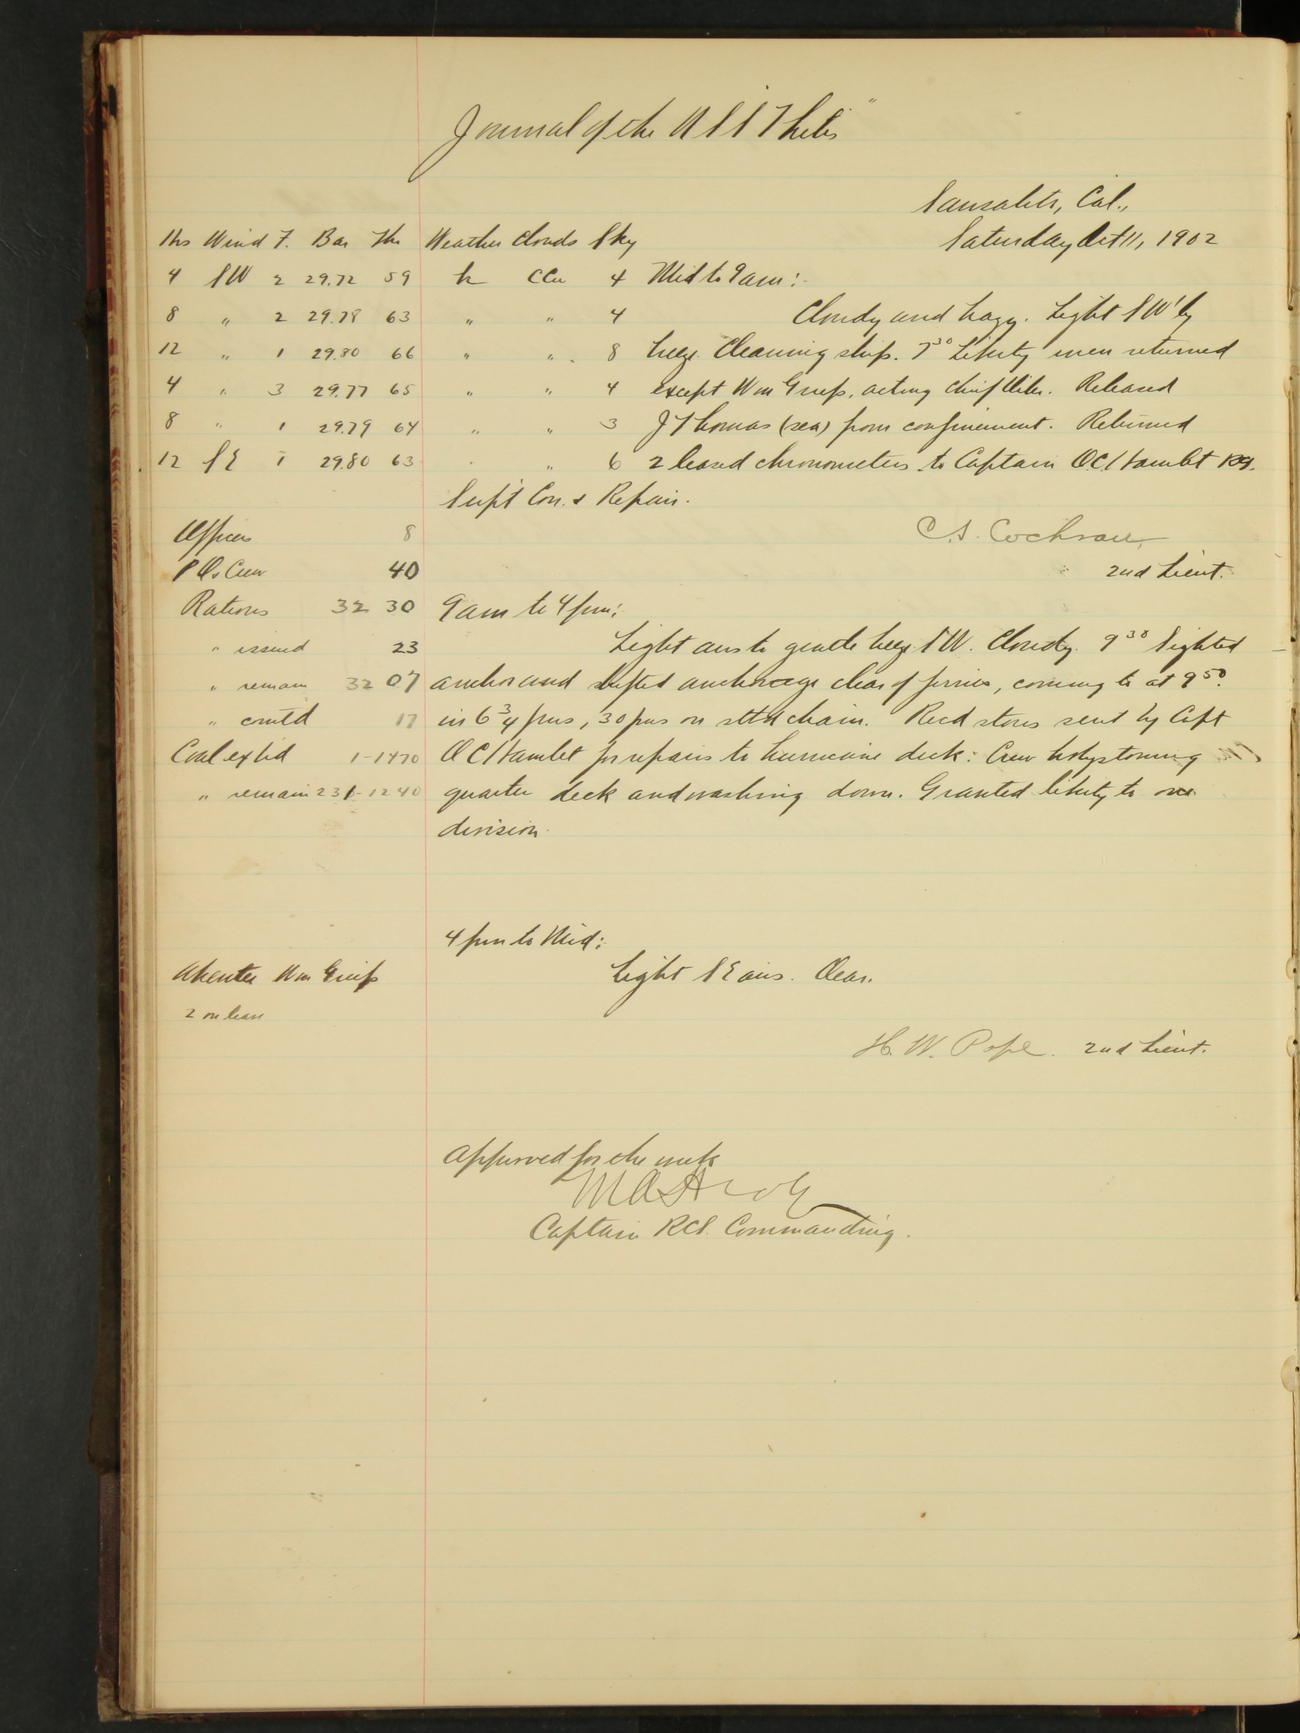 Journal of the U S S Thetis"
Sausalito, Cal.,
Saturday Oct 11, 1902
Hrs Wind F. Bar Thr Weather Clouds Sky
4 SW 2 29.72 59 h CCu 4 Mid to 9 am:
8 " 2 29.78 63 " " 4 Cloudy and hazy. Light SW'ly
12 " 1 29.80 66 " " 8 breeze. Cleaning ship. 7 30 Liberty men returned
4 " 3 29.77 65 " " 4 except Wm , acting chief Released
8 " 1 29.79 64 " " 3 J Thomas (sea) from confinement. Returned
12 SE 1 29.80 63 " 6 2 leased chronometers to Captain O C Hamlet RCS.
Supt Con. & Repair.
Officers 8
C. S. Cochran
P O & Crew 40
2nd Lieut.
Rations 32 30 9 am to 4 pm:
" issued 23 Light airs to gentle breeze SW. Cloudy. 9 38 Sighted
" remain 32 07 anchor and shifted anchorage clear of ferries, coming to at 9 50.
" comtd 17 in 6 3/4 fms, 30 fms on stbd chain. Recd stores sent by Capt
Coal exp'd 1-1470 O C Hamlet for repairs to hurricane deck: Crew holystoning
" remain 231-1240 quarter deck and washing down. Granted liberty to one
division.
4 pm to Mid:
Absentee Wm
Light SE airs. Clear.
2 on leave
H. W. Pope. 2nd Lieut.
Approved for the week
Captain RCS. Commanding.